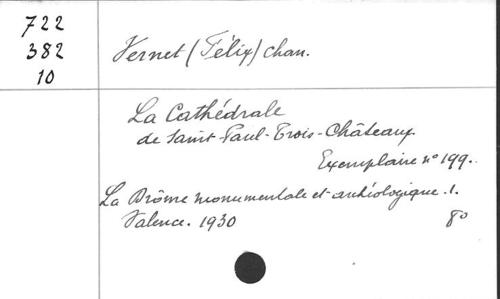 722
382
10
Vernet (Félix) chan.
La Cathédrale
de Saint-Paul-Trois-Châteaux.
Exemplaire n° 199.
La Drôme monumentale et archéologique. 1.
Valence. 1930
8°